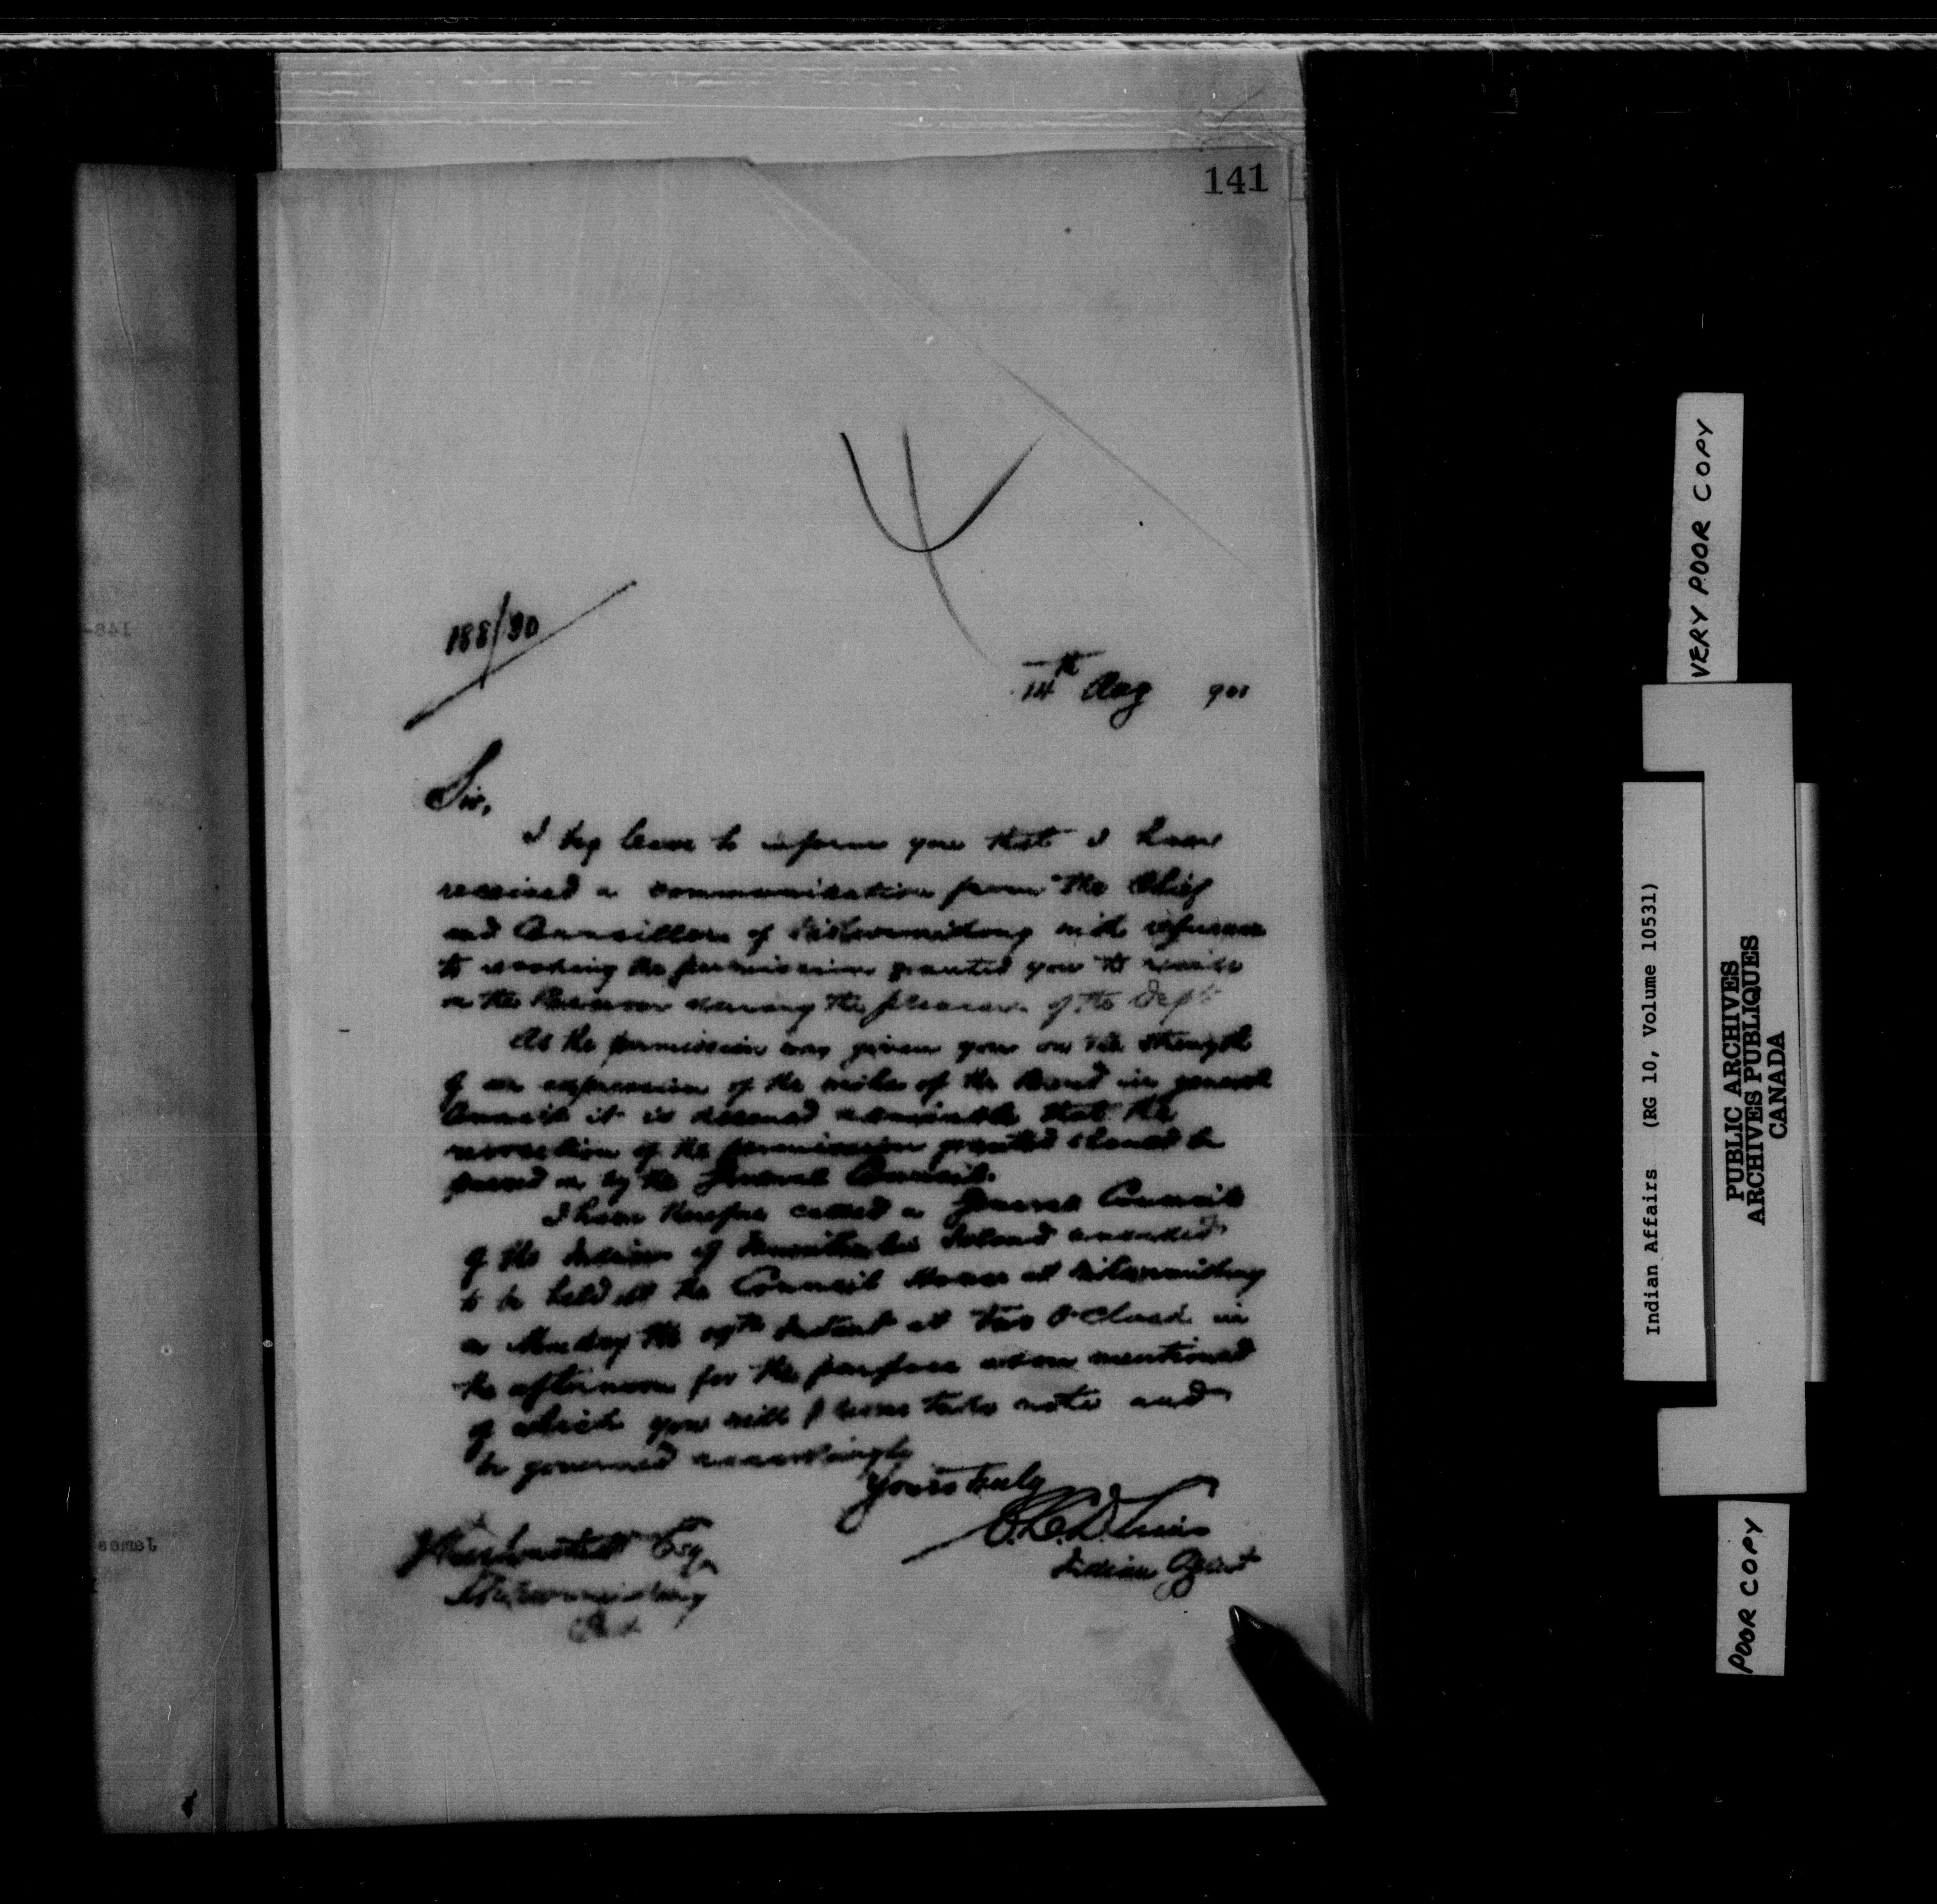 141
188/90
14th Aug 901
Sir,
I beg leave to inform you that I have
received a communication from the Chief
and Councillors of with reference
to the permission granted you to reside
on the Reserve during the pleasure of the Dept
As the permission was given you on the strength
of an expression of the wishes of the Band in general
Council it is deemed that the
revocation of the permission granted should be
passed on by the General Council.
I have therefore called a General Council
of the Indians of Manitoulin Island unceded
to be held at the Council House at
on Monday the Instant at two O'Clock in
the afternoon for the purpose above mentioned
of which you will please take note and
be governed accordingly
Yours truly
Indian Agent
Esq
VERY POOR COPY
Indian Affairs (RG 10, Volume 10531)
PUBLIC ARCHIVES
ARCHIVES PUBLIQUES
CANADA
POOR COPY